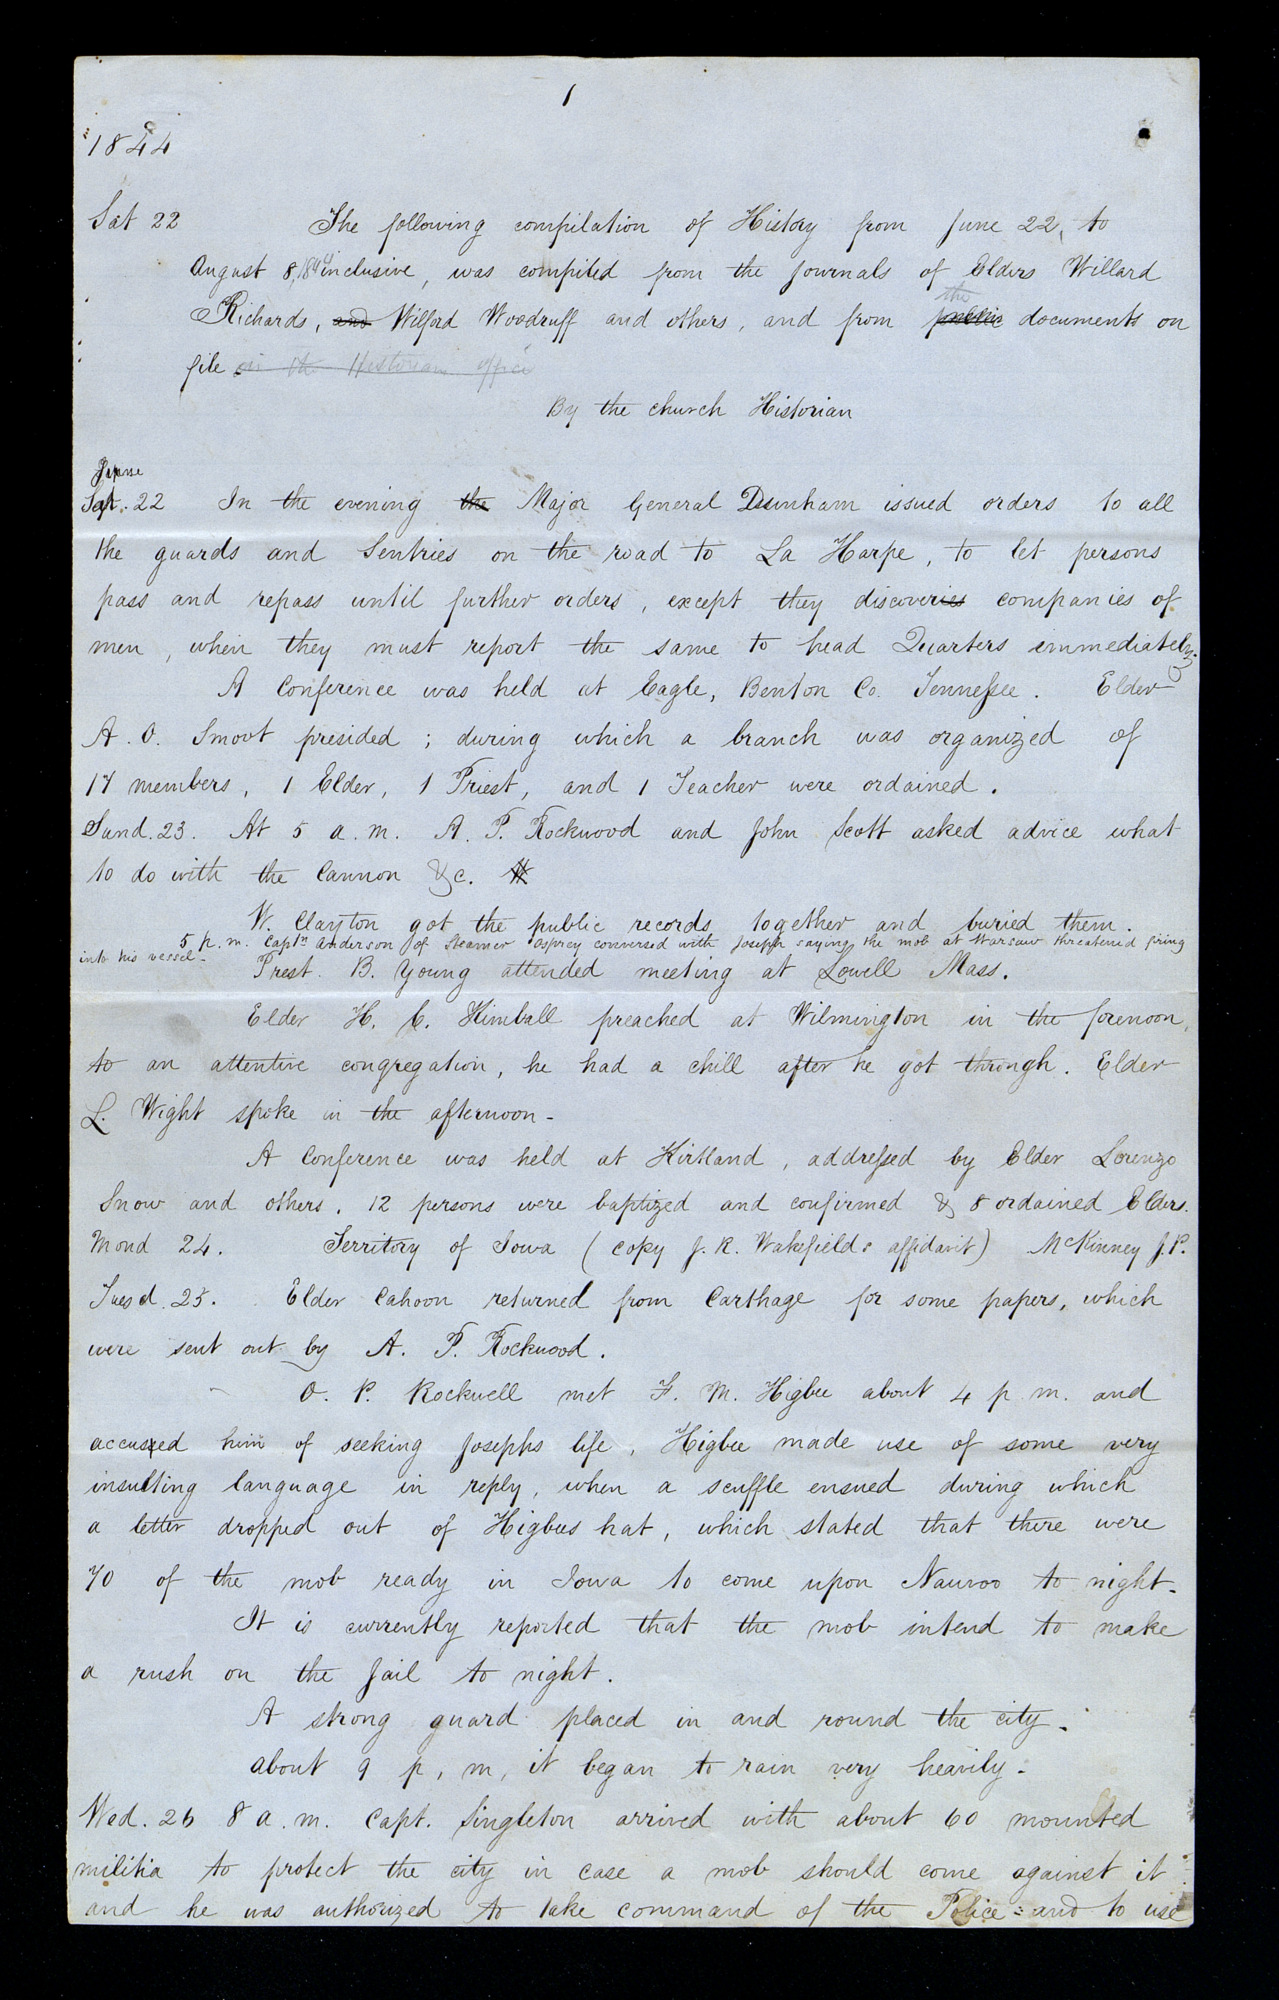 1
1844
Sat 22 The following compilation of History from June 22, to
August 8, 1844 inclusive, was compiled from the journals of Elders Willard
the
Richards, and Wilford Woodruff and others, and from public documents on
file in the Historians office
By the church Historian
June
Sat. 22 In the evening the Major General Dunham issued orders to all
the guards and Sentries on the road to La Harpe, to let persons
pass and repass until further orders, except they discoveries companies of
men, when they must report the same to head Quarters immediately.
A Conference was held at Eagle, Benton Co. Tennessee. Elder
A. O. Smoot presided; during which a branch was organized of
17 members, 1 Elder, 1 Priest, and 1 Teacher were ordained.
Sund. 23. At 5 a.m. A. P. Rockwood and John Scott asked advice what
to do with the Cannon &c.
W. Clayton got the public records together and buried them.
5 p.m. Captn Anderson of Steamer Osprey conversed with Joseph saying the mob at Warsaw threatened firing
into his vessel-
Prest. B. Young attended meeting at Lowell Mass.
Elder H. C. Kimball preached at Wilmington in the forenoon,
to an attentive congregation, he had a chill after he got through. Elder
L. Wight spoke in the afternoon-
A Conference was held at Kirtland, addressed by Elder Lorenzo
Snow and others. 12 persons were baptized and confirmed & 8 ordained Elders.
Mond 24. Territory of Iowa (copy J. R. Wakefields affidavit) McKinney J.P.
Tuesd. 25. Elder Cahoon returned from Carthage for some papers, which
were sent out by A. P. Rockwood.
O. P. Rockwell met F. M. Higbee about 4 p.m. and
accused him of seeking Josephs life, Higbee made use of some very
insulting language in reply, when a scuffle ensued during which
a letter dropped out of Higbees hat, which stated that there were
70 of the mob ready in Iowa to come upon Nauvoo to night-
It is currently reported that the mob intend to make
a rush on the jail to night.
A strong guard placed in and round the city-
about 9 p, m, it began to rain very heavily-
Wed. 26 8 a.m. Capt. Singleton arrived with about 60 mounted
militia to protect the city in case a mob should come against it
and he was authorized to take command of the Police= and to use